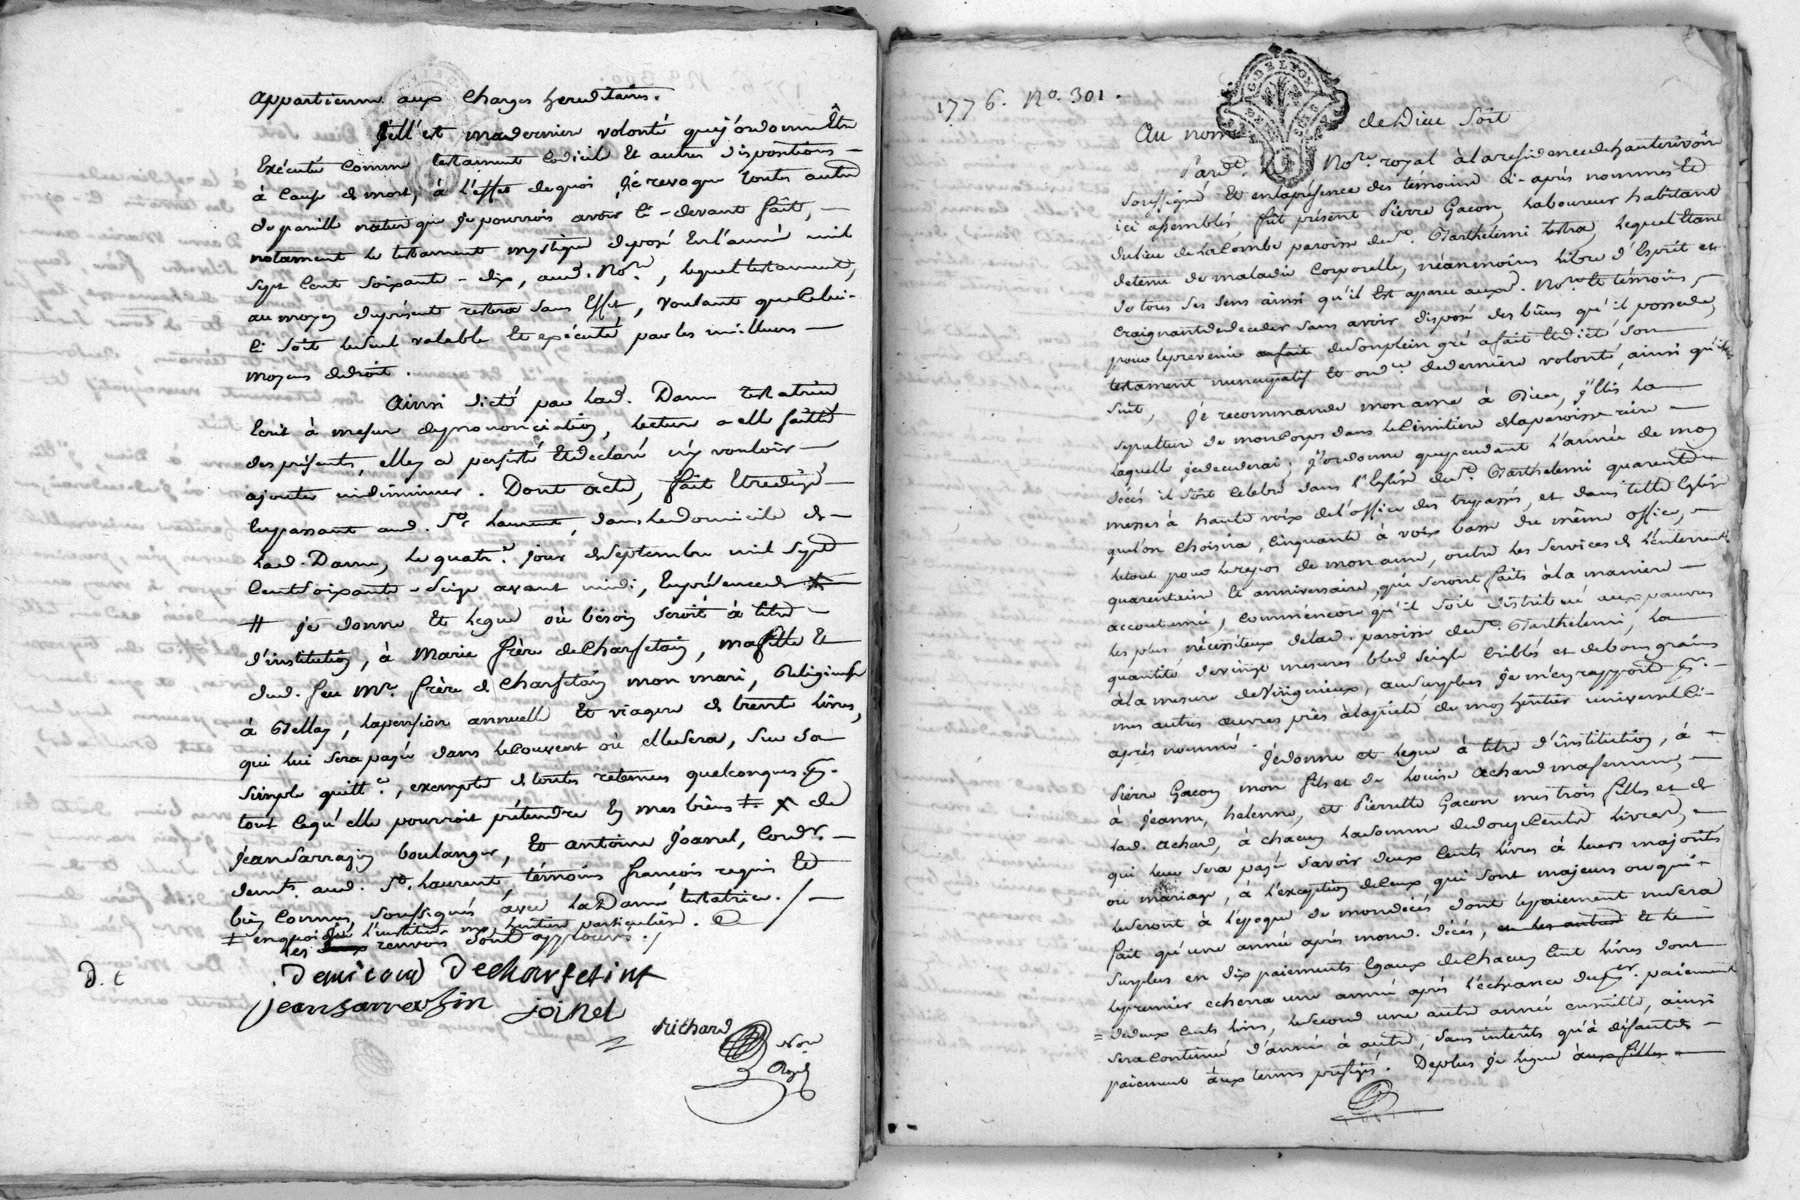 appartienne aux charges hereditaires.
Tell'est maderniere volonté quej'ordonne Etre
Exécuté comme testament codicil Et autres dispositions
à cause de mort, à l'effet dequoi Je revoque toutes autre
depareille nature que Je pourrois avoir ci-devant fait,
notament le testament mystique deposé En l'année mil
sept cent soixante-dix, aud. Nore, lequel testament,
au moyen du présent restera sans Effet, voulant que Celui-
ci soit le seul valable Et exécuté par les meilleurs
moyens de droit.
Ainsi dicté par lad. Dame testatrice
Ecrit à mesure de prononciation, lecture a elle faitte
des présentes, elle y a persisté Et declaré n'y vouloir
ajouter ni diminuer. Dont acte, fait Et redigé
En passant aud. St. Laurent, dans le domicile de
lad. Dame, le quatre. jour de Septembre mil sept
Cent soixante-seize avant midi, En présence de
# je donne Et legue où besoin seroit à titre
d'institution, à Marie frère de Charfetain, ma fille Et
dud. feu Mr. frère de Charfetain mon mari, Religieuse
à Belley, la pension annuelle Et viagere de trente livres,
qui lui sera payée dans le Couvent où elle sera, sur sa
simple quittce, exempte de toutes retenues quelconques &.
tout ce qu'elle pourroit prétendre En mes biens # x de
Jean Sarrazin boulanger, Et antoine Joanel, Cordr.
demts. aud. St. Laurent, témoins français requis Et
bien Connus, soussignés avec la Dame testatrice./.
# en quoi je l'institue mon héritiere particuliere.
les renvois sont approuvés./.
D. t
Demicoud Decharfetint
jean sarrasin joinel
Richard Nore
Royl
1776. No. 301.
Au nom de Dieu soit
Pardt. Nore. royal à la residence de hauterivoire
soussigné Et en la présence des témoins Ci-après nommés Et
ici assemblés, fût présent Pierre Gacon, laboureur habitant
du lieu de la Combe paroisse de St. Barthelemi lestra, lequel Etant
detenu de maladie Corporelle, néanmoins libre d'Esprit et
de tous ses sens ainsi qu'il Est aparu auxd. Nore. Et témoins,
craignant de deceder sans avoir disposé des biens qu'il possede,
pour le prevenir de son plein gré a fait Et dicté son
testament nuncupatif Et ordce. de derniere volonté, ainsi qu'il
suit, Je recommande mon ame à Dieu, J'Elis la
sepulture de mon Corps dans le Cimitiere de la paroisse rière
laquelle je decederai, J'ordonne que pendant l'année de mon
décés il soit Celebré dans l'Eglise de St. Barthelemi quarente
messes à haute voix de l'office des trepassés, et dans telle Eglise
que l'on Choisira, Cinquante à voix basse du même office,
le tout pour le repos de mon ame, outre les services de l'enterrement
quarentaine Et anniversaire, qui seront faits à la maniere
accoutumée, Comm'encor qu'il soit distribué aux pauvres
les plus nécessiteux de lad. paroisse de St. Barthelemi, la
quantité de vingt mesures bled seigle Criblés et de bons grains
à la mesure de Virigneux, au surplus je m'en rapporte &.
mes autres œuvres pies à la piété de mon héritier universel Ci-
après nommé.
Je donne et legue à titre d'institution, à
Pierre Gacon mon fils et de Louise Achard ma femme,
à Jeanne, helenne, et Pierrette Gacon mes trois filles et de
lad. Achard, à chacun la somme de douze Cents livres,
qui leur sera payée savoir deux Cents livres à leurs majorités
ou mariage, à l'exception de Ceux qui sont majeurs ou qui
le seront à l'epoque de mon décés dont le paiement ne sera
fait qu'une année après mond. décés, et les autres Et le
surplus en dix paiements Egaux de Chacun Cent livres dont
le premier echerra une année après l'échéance du per. paiement
= de deux Cents livres, le second une autre année ensuitte, ainsi
sera continué d'année à autre, sans interêts qu'à défaut de
paiement aux termes prefigés. De plus Je legue à aux filles